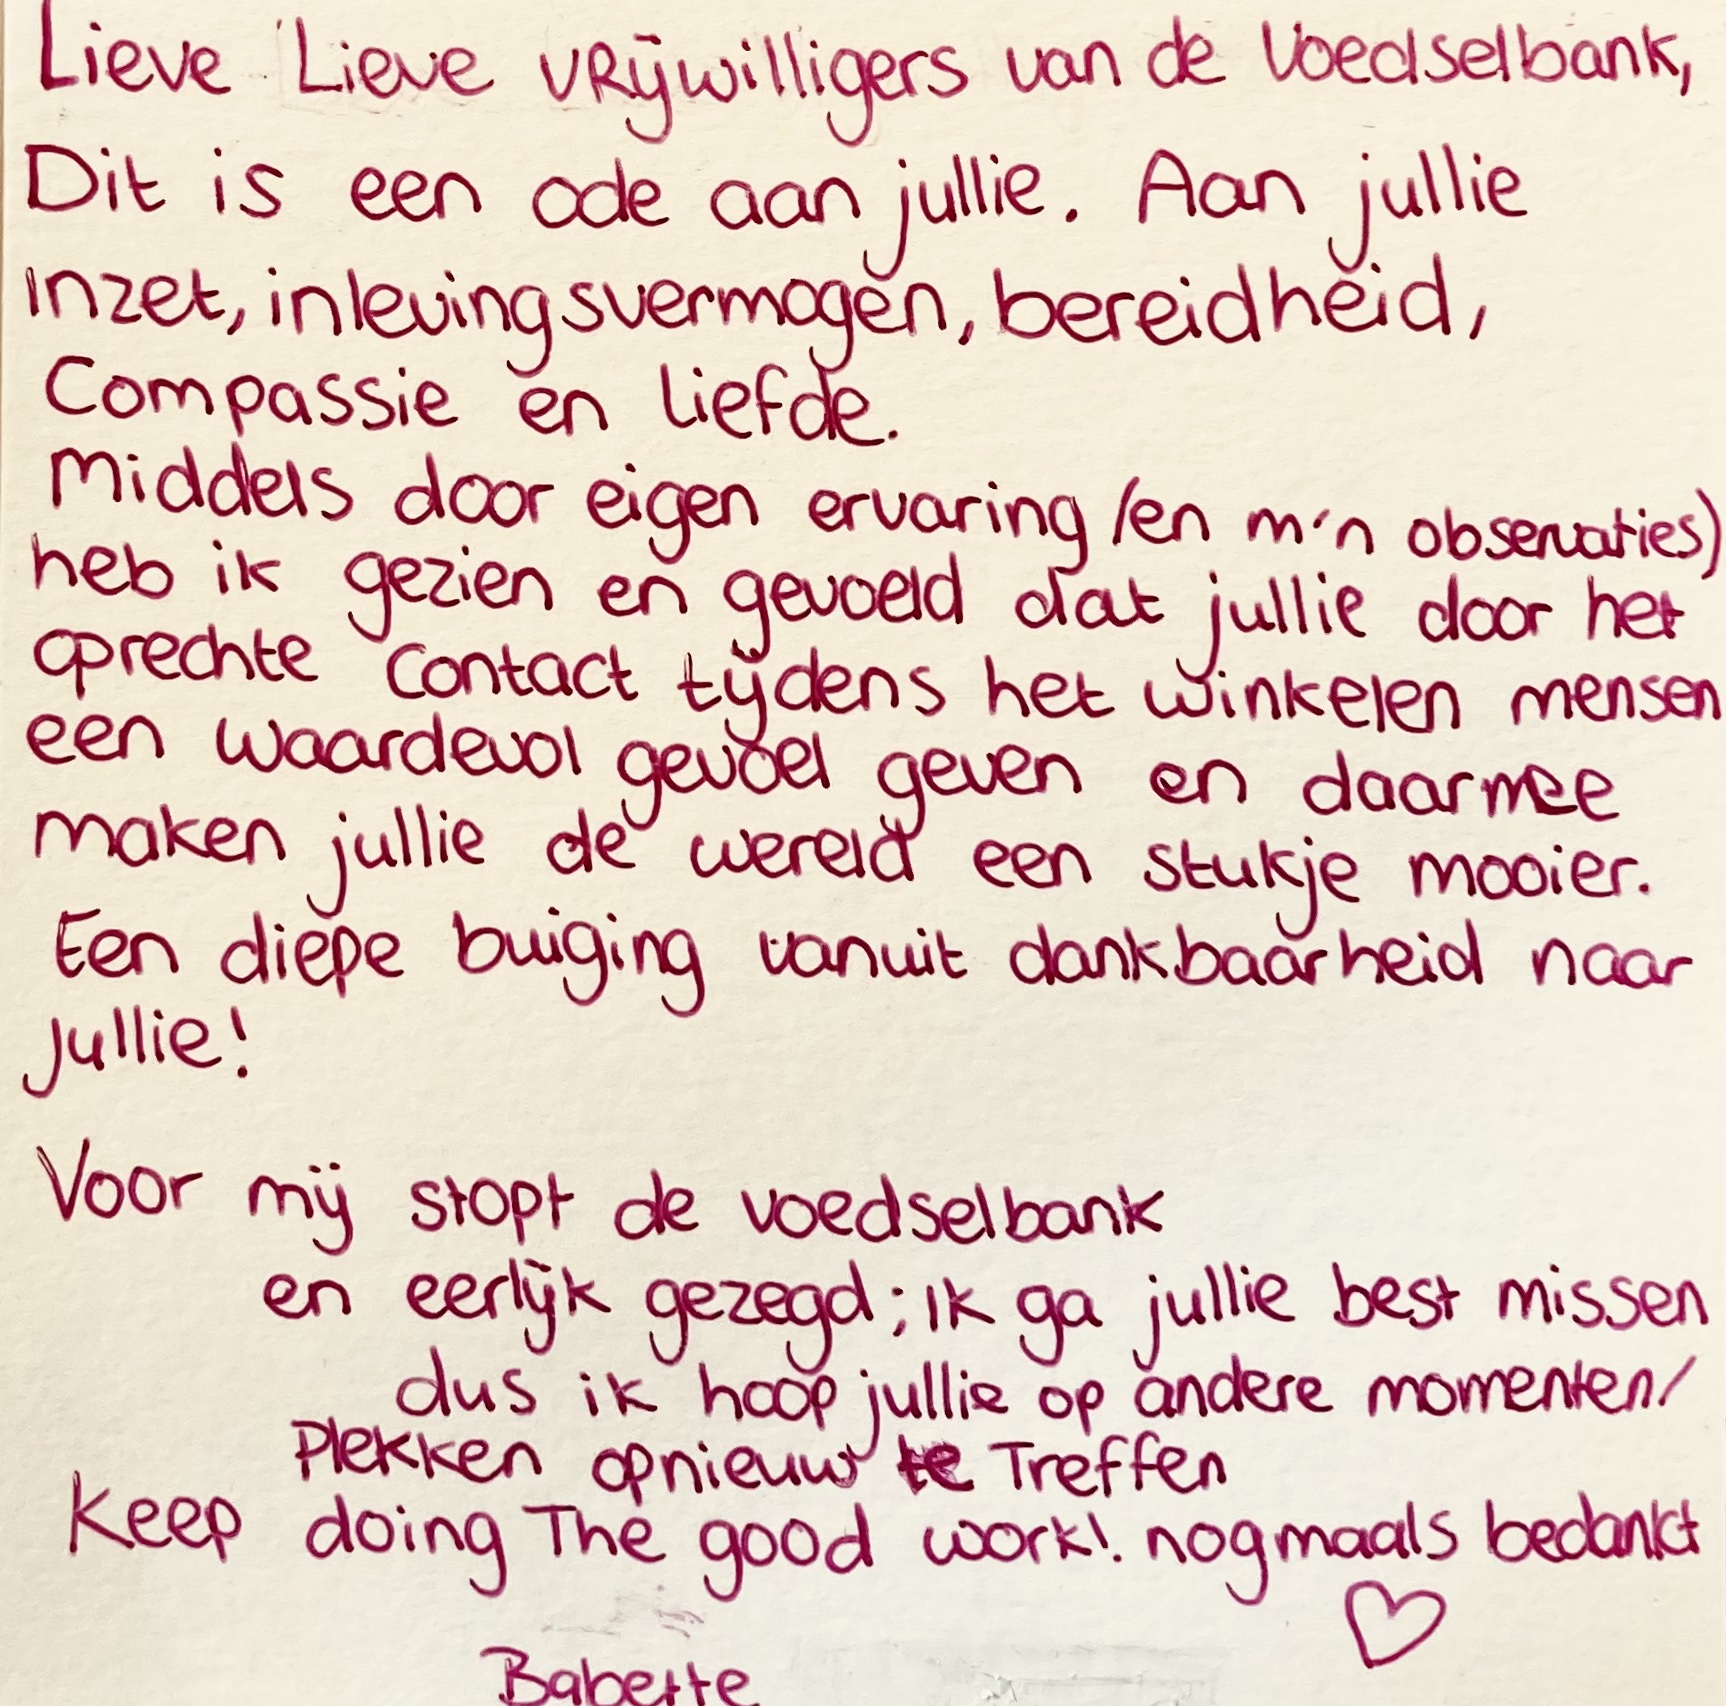 Lieve Lieve vrijwilligers van de Voedselbank,
Dit is een ode aan jullie. Aan jullie
inzet, inlevingsvermogen, bereidheid,
Compassie en liefde.
Middels door eigen ervaring (en m'n observaties)
heb ik gezien en gevoeld dat jullie door het
oprechte contact tijdens het winkelen mensen
een waardevol gevoel geven en daarmee
maken jullie de wereld een stukje mooier.
Een diepe buiging vanuit dankbaarheid naar
jullie!
Voor mij stopt de voedselbank
en eerlijk gezegd; ik ga jullie best missen
dus ik hoop jullie op andere momenten/
Plekken opnieuw te Treffen
Keep doing The good work! nogmaals bedankt
Babette